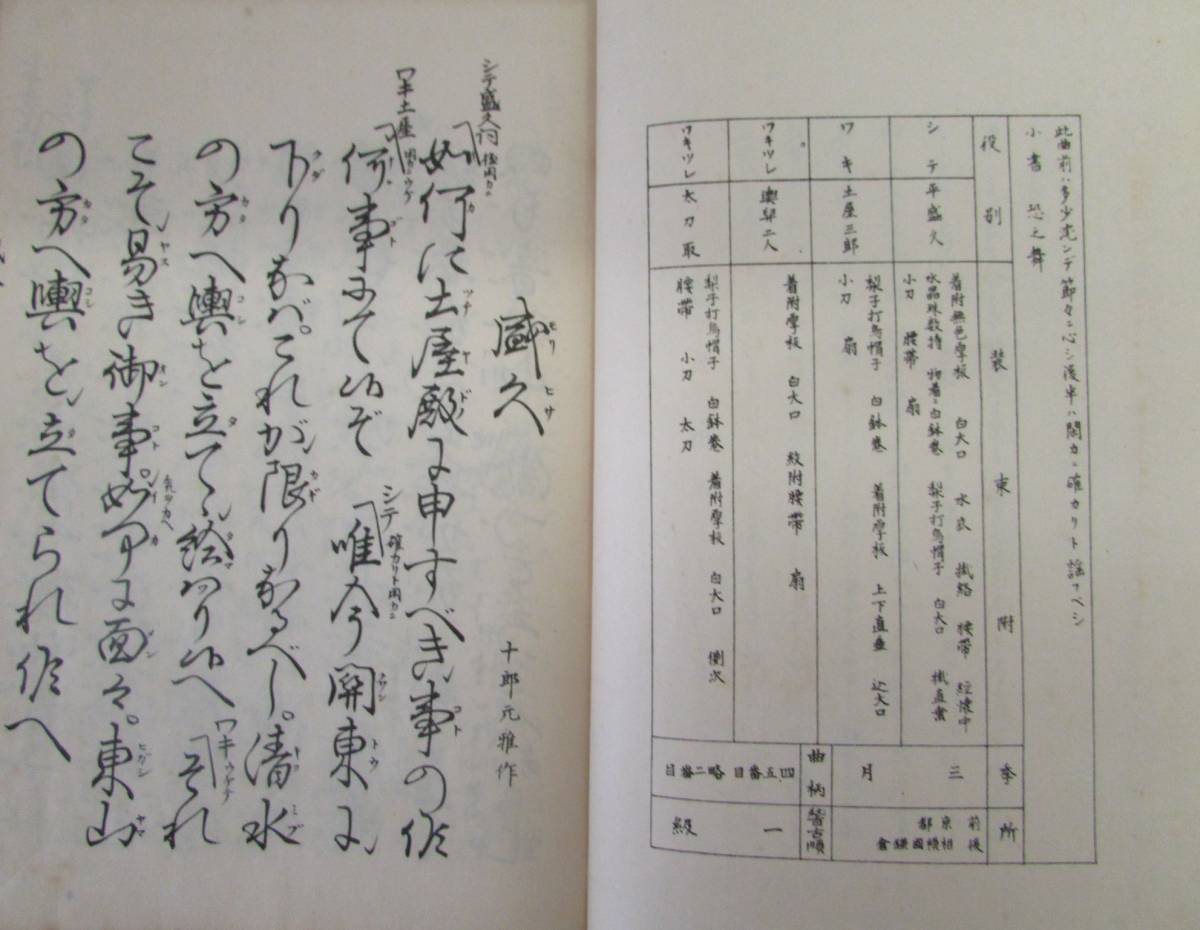 此曲前ハ多少党ンデ節々ニ心シ後半ハ閑カニ確カリト謡フベシ
小書 恐之舞
役別
装束附
季
所
シテ 平盛久
着附無色厚板 白大口 水衣 掛絡 腰帯 経懐中
水晶珠数持 物着ニ白鉢巻 梨子打烏帽子 白大口 掛直垂
小刀 腰帯 扇
ワキ 土屋三郎
梨子打烏帽子 白鉢巻 着附厚板 上下直垂 込大口
小刀 扇
ワキツレ 輿舁二人
着附厚板 白大口 紋附腰帯 扇
ワキツレ 太刀取
梨子打烏帽子 白鉢巻 着附厚板 白大口 側次
腰帯 小刀 太刀
三月
前 京都
後 相模國鎌倉
曲柄
四五番目 略二番目
稽古順
一級
盛久
モリヒサ
十郎元雅作
シテ盛久詞
如何に土屋殿に申すべき事の候
ワキ土屋
何事にて候ぞ
シテ 確カリト閑カニ
唯今関東に
下りなば。これが限りなるべし。清水
の方へ輿を立てゝ給はり候へ
ワキ ウケテ
それ
こそ易き御事。如何に面々。東山
の方へ輿を立てられ候へ